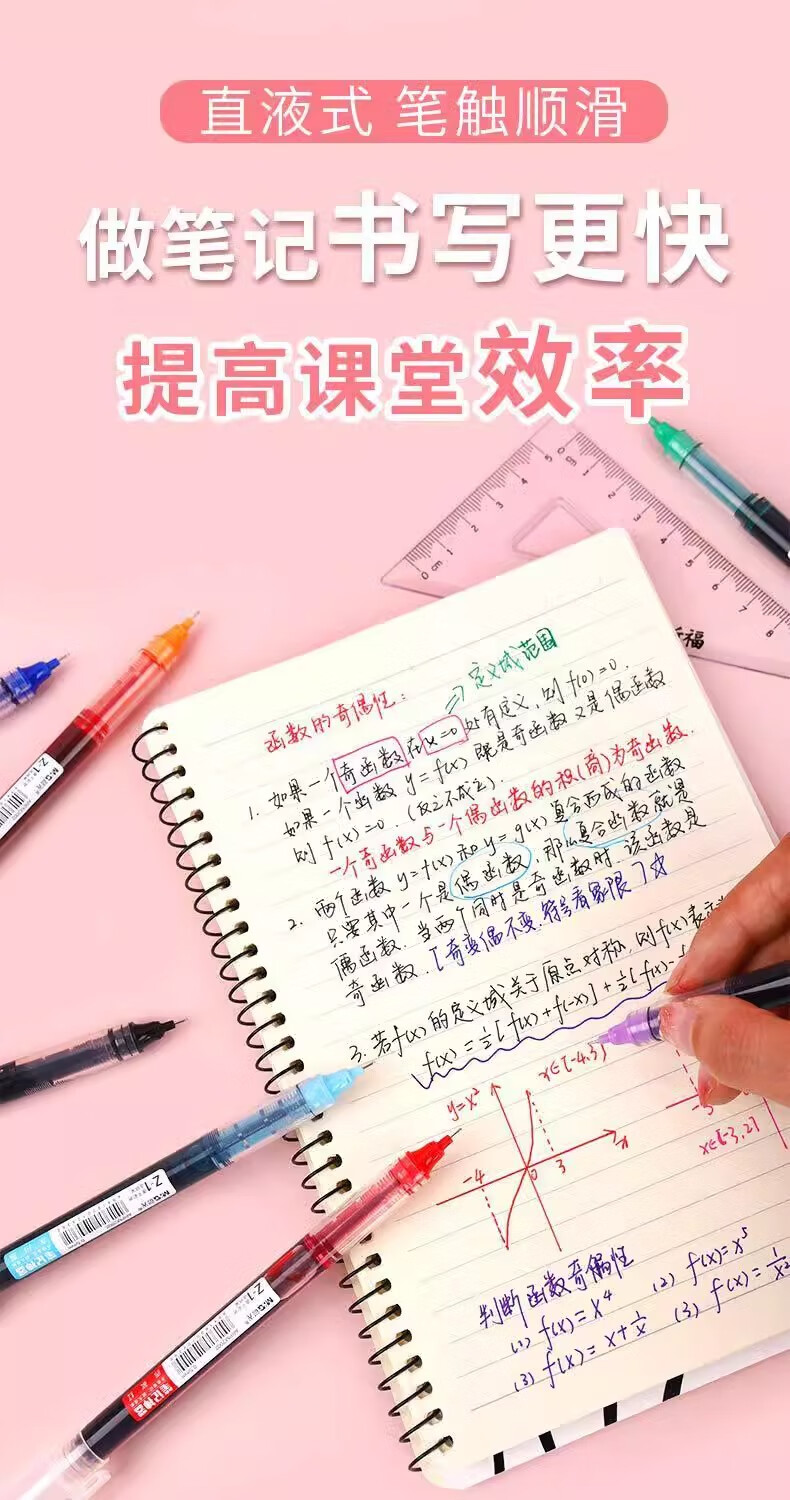 直液式 笔触顺滑
做笔记书写更快
提高课堂效率
0 cm 1 2 3 4 5
0 cm 1 2 3 4 5 6 7 8
祈福
⇒ 定义域范围
函数的奇偶性：
1. 如果一个奇函数在x=0处有定义，则f(0)=0.
如果一个函数y=f(x)既是奇函数又是偶函数
则f(x)=0.（反之不成立）.
一个奇函数与一个偶函数的积(商)为奇函数.
2. 两个函数y=f(x)和y=g(x)复合形成的函数
只要其中一个是偶函数，那么复合函数就是
偶函数.当两个同时是奇函数时.该函数是
奇函数.[奇变偶不变.符号看象限]☆
3. 若f(x)的定义域关于原点对称，则f(x)表示
f(x)=½[f(x)+f(-x)]+½[f(x)-f
y=x²
x∈[-4,3)
-4
0
3
x
-3
x∈[-3,2]
判断函数奇偶性
(1) f(x)=x⁴
(2) f(x)=x⁵
(3) f(x)=x+1/x
(3) f(x)=1/x²
M&G 晨光
Z-1
M&G 晨光
Z-1
笔记神器
M&G 晨光
Z-1
笔记神器